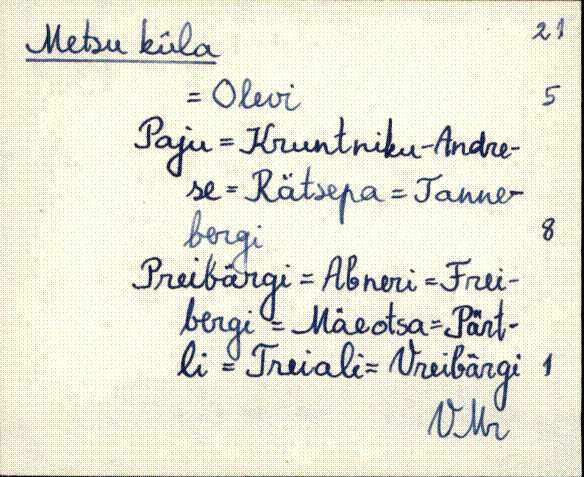 Metsu küla 21
= Olevi 5
Paju = Kruntniku-Andre-
se = Rätsepa = Tanne-
bergi 8
Preibärgi = Abneri = Frei-
bergi = Mäeotsa = Pärt-
li = Treiali = Vreibärgi 1
VMr